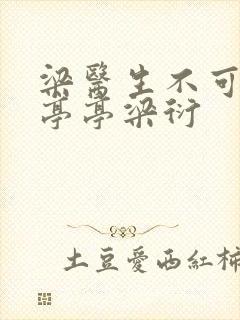 梁醫生不可
亭亭梁衍
土豆愛西紅柿